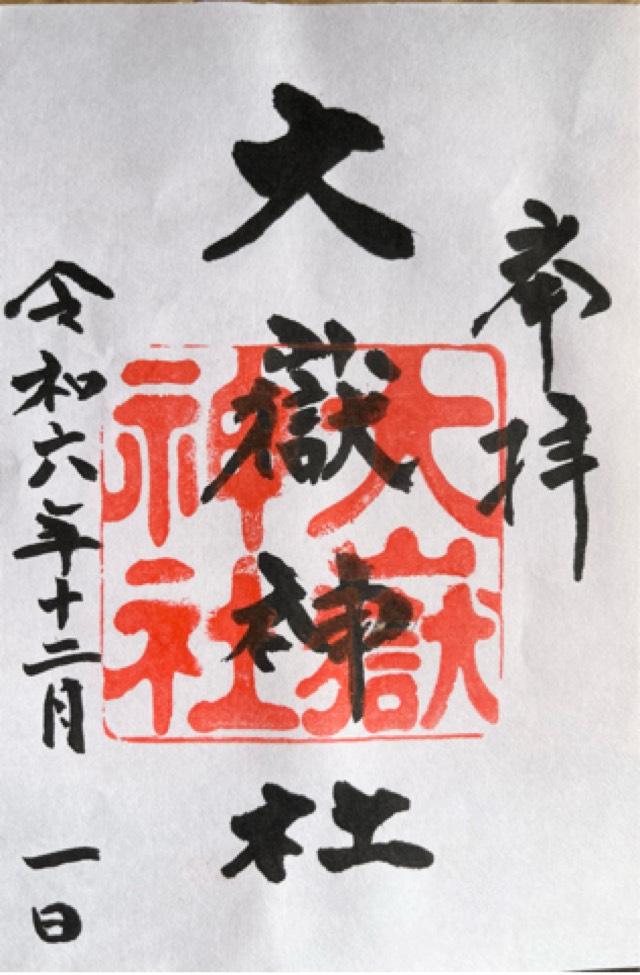 奉拝
大嶽神社
大嶽
神社
令和六年十二月一日